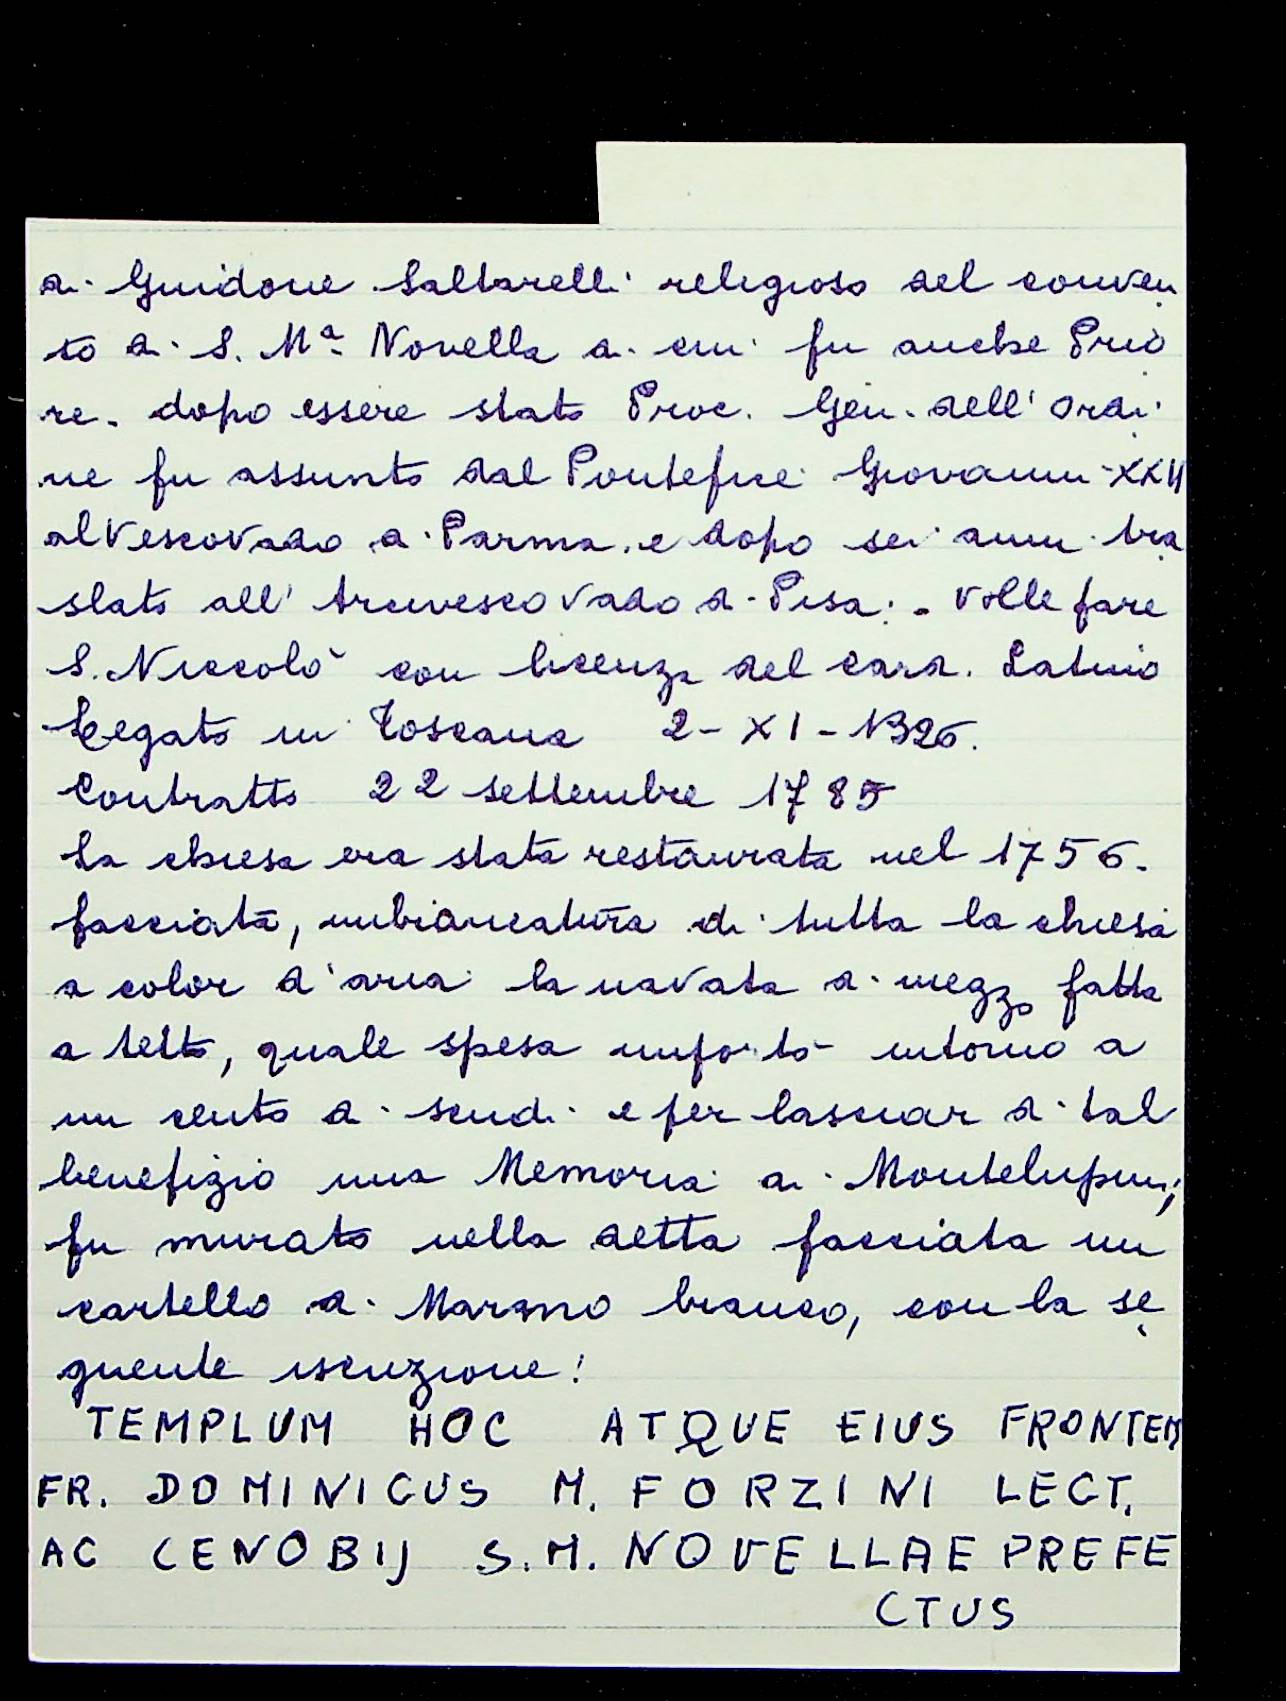 di Guidone Saltarelli religioso del conven
to di S. Mª Novella di cui fu anche Prio
re. dopo essere stato Proc. Gen. dell'Ordi
ne fu assunto dal Pontefice Giovanni XXII
al Vescovado di Parma. e dopo sei anni tra
slato all'Arcivescovado di Pisa. - Volle fare
S. Niccolò con licenza del Card. Latino
Legato in Toscana 2-XI-1326.
Contratto 22 settembre 1785
La chiesa era stata restaurata nel 1756.
facciata, imbiancatura di tutta la chiesa
a color d'aria la navata di mezzo fatta
a tetto, quale spesa importò intorno a
un cento di scudi e per lasciar di tal
benefizio una Memoria ai Montelupini,
fu murato nella detta facciata un
cartello di Marmo bianco, con la se
guente iscrizione!
TEMPLUM HOC ATQUE EIUS FRONTEM
FR. DOMINICUS M. FORZINI LECT.
AC CENOBIJ S.M. NOVELLAE PREFE
CTUS